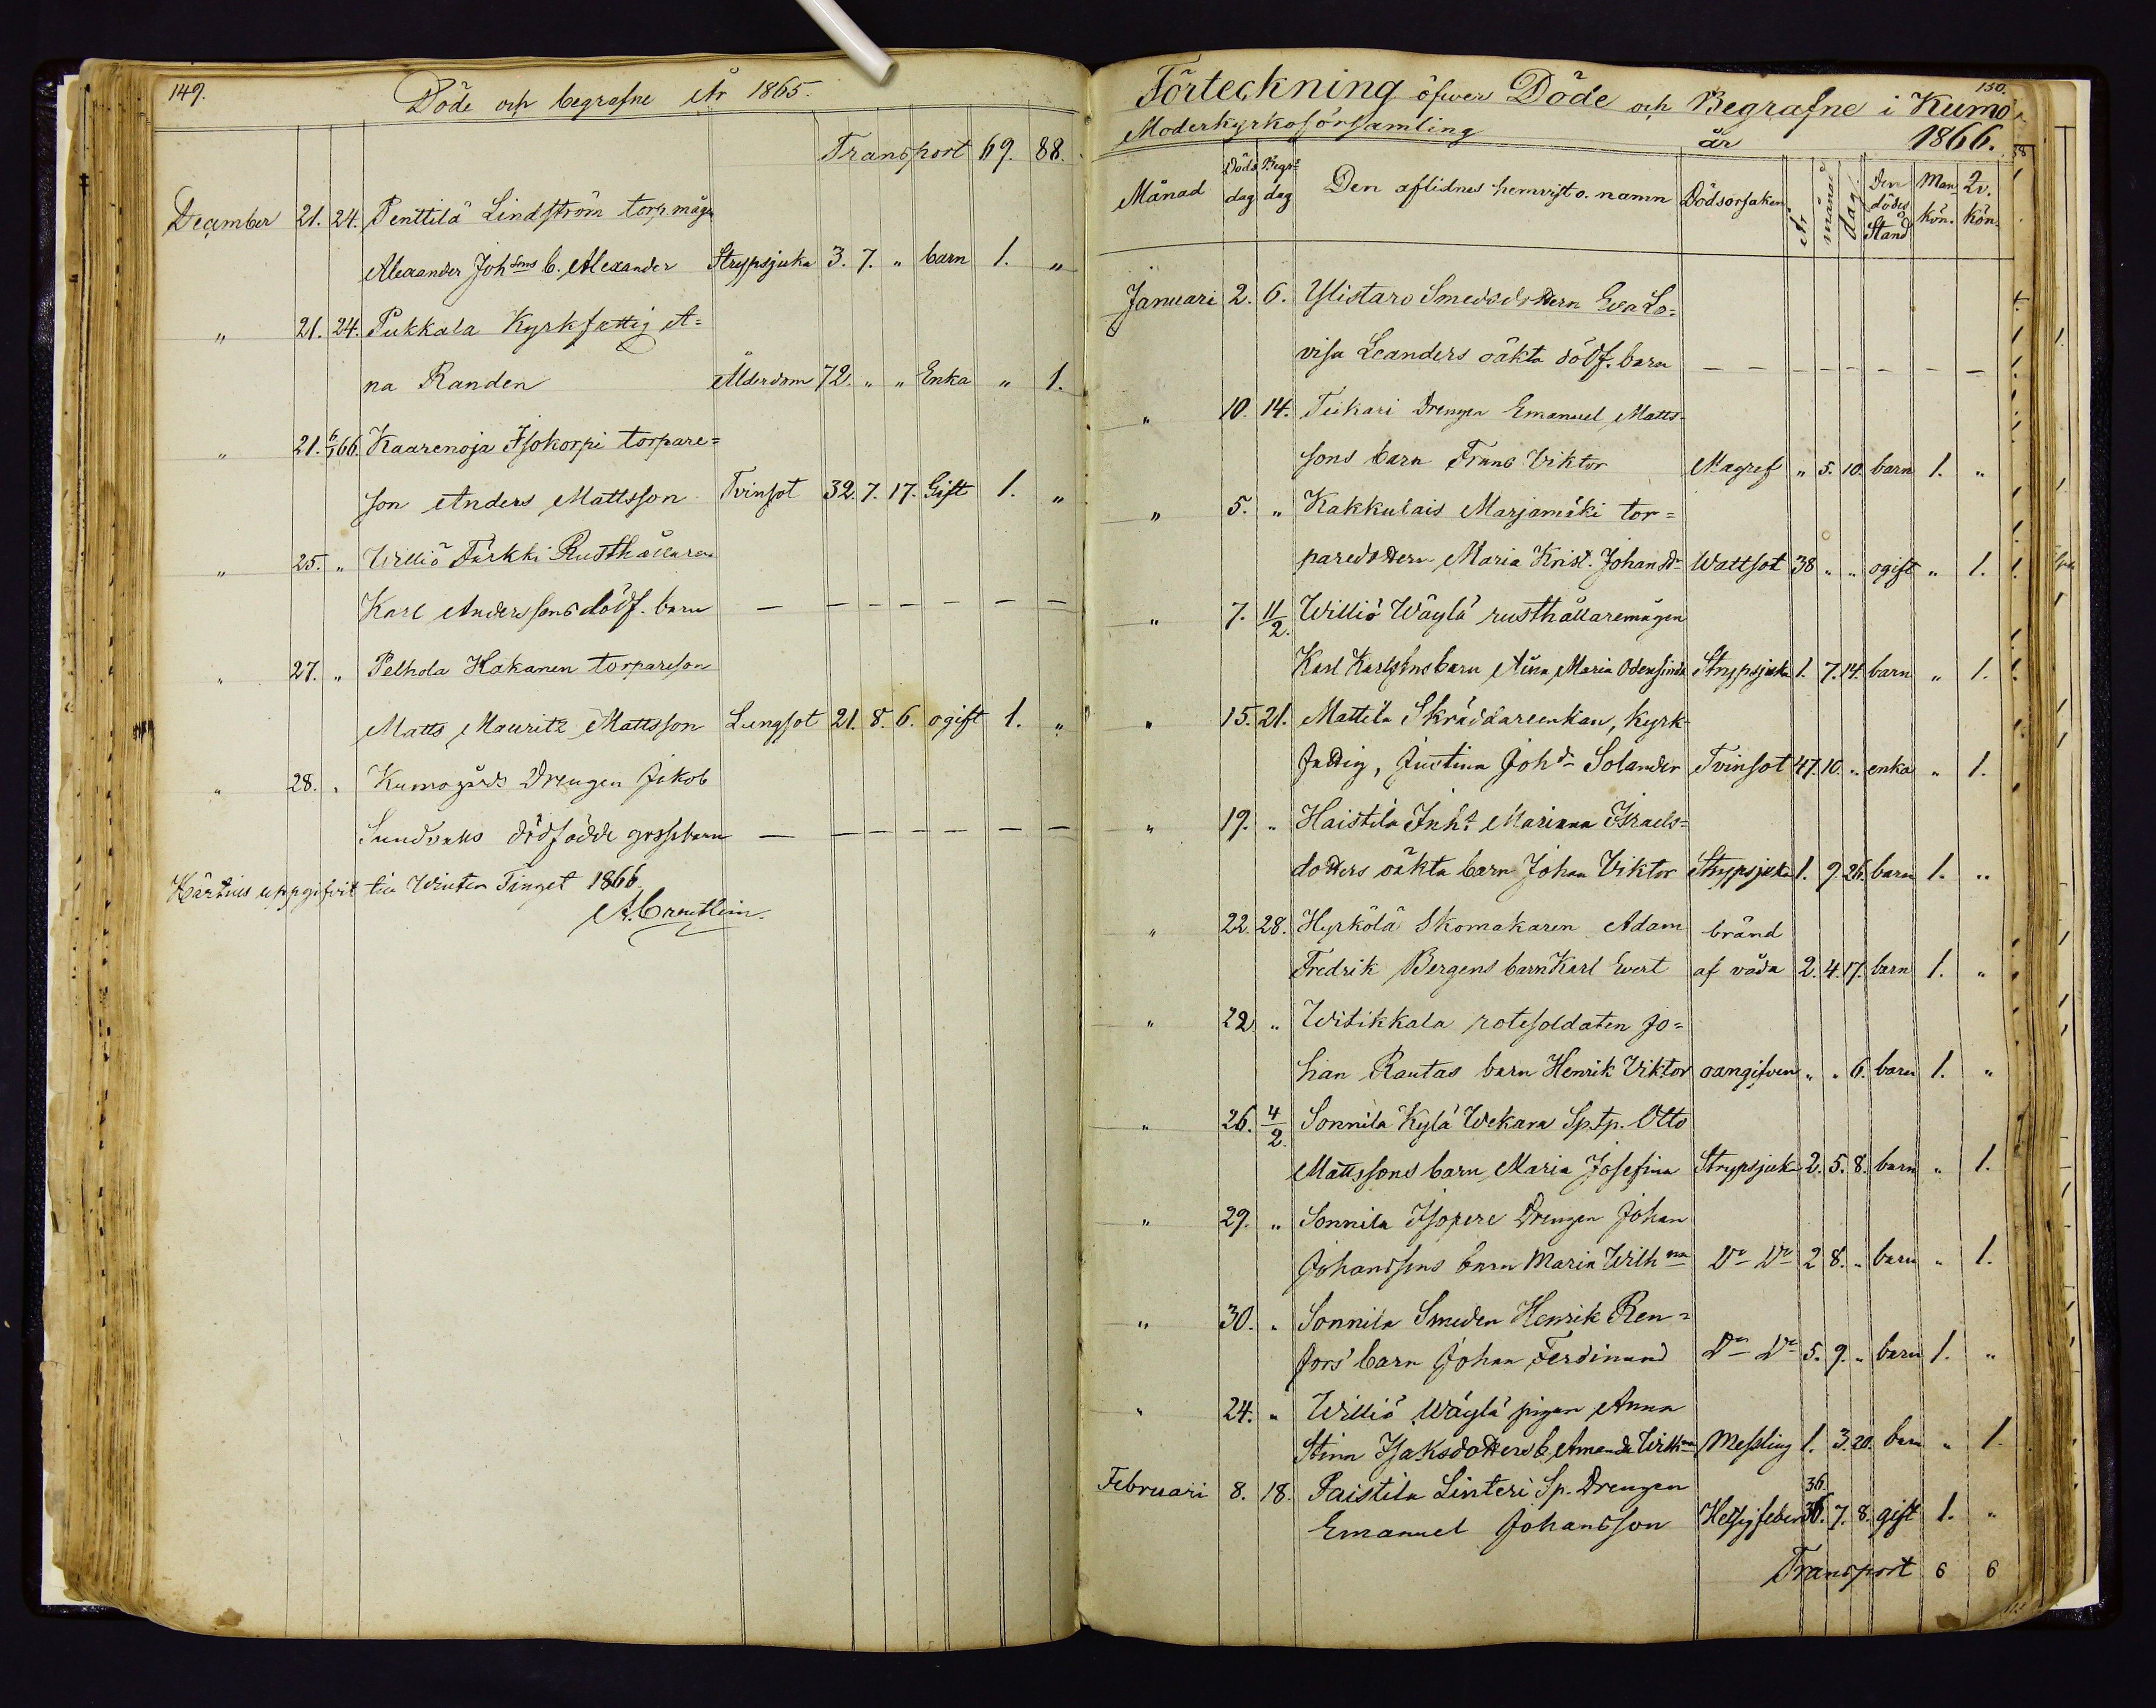 149.
Döde och begrafne År 1865.
Transport 69. 88.
December 21. 24. Penttilä Lindström torp.mågen
Alexander Johsons b. Alexander Strypsjuka 3. 7. " barn 1. "
" 21. 24. Pukkala Kyrkfattig A=
na Randen Ålderdom 72. " " Enka " 1.
" 21. 6/1 66. Kaarenoja Isokorpi torpare=
son Anders Mattsson Tvinsot 32. 7. 17. Gift 1. "
" 25. " Williö Färkki Rusthållaren
Karl Anderssons dödf. barn — — — — — — —
" 27. " Pelhola Hakanen torpareson
Matts Mauritz Mattsson Lungsot 21. 8. 6. ogift 1. "
" 28. " Kumogårds Drengen Jakob
Sundvalls dödfödde gossebarn — — — — — — —
Härtills uppgifvit till Winter Tinget 1866.
150.
Förteckning öfwer Döde och Begrafne i Kumo
Moderkyrkoförsamling år 1866.
Månad Döds dag Begr: dag Den aflidnes hemvist o. namn Dödsorsaken År månad dag. Den dödes Stånd Man kön. Qv. kön.
Januari 2. 6. Ylistaro Smedsdottern Eva Lo=
visa Leanders oäkta dödf. barn — — — — — — —
" 10. 14. Teikari Drengen Emanuel Matts-
sons barn Frans Viktor Magref " 5. 10. barn 1. "
" 5. " Kakkulais Marjamäki tor=
paredottern Maria Krist. Johansdr Wattsot 38 " " ogift " 1.
" 7. 11/2. Williö Wäylä rusthållaremågen
Karl Karlssons barn Aina Maria Odensinda Strypsjuka 1. 7. 14. barn " 1.
" 15. 21. Mattila Skräddareenkan, Kyrk-
fattig, Justina Johdr Solander Tvinsot 47. 10. " enka " 1.
" 19. " Haistila Inhs Marianna Israels=
dotters oäkta barn Johan Viktor Strypsjuka 1. 9. 26. barn 1. "
" 22. 28. Hyrkölä Skomakaren Adam bränd
Fredrik Bergens barn Karl Evert af våda 2. 4. 17. barn 1. "
" 22 " Witikkala rotesoldaten Jo=
han Rautas barn Henrik Viktor oangifven " " 6. barn 1. "
" 26. 4/2. Sonnila Kylä Wekara Sp.tp. Otto
Mattssons barn Maria Josefina Strypsjuka 2. 5. 8. barn " 1.
" 29. " Sonnila Isopere Drengen Johan
Johanssons barn Maria Wilhna Do Do 2 8. " barn " 1.
" 30. " Sonnila Smeden Henrik Ren=
fors' barn Johan Ferdinand Do Do 5. 9. " barn 1. "
" 24. " Williö Wäylä pigan Anna
Stina Isaksdotters b. Amanda Wilhna Messling 1. 3. 20. barn " 1.
36.
Februari 8. 18. Paistila Linteri Sp. Drengen
Emanuel Johansson Hetsig feber 36. 7. 8. gift 1. "
Transport 6 6